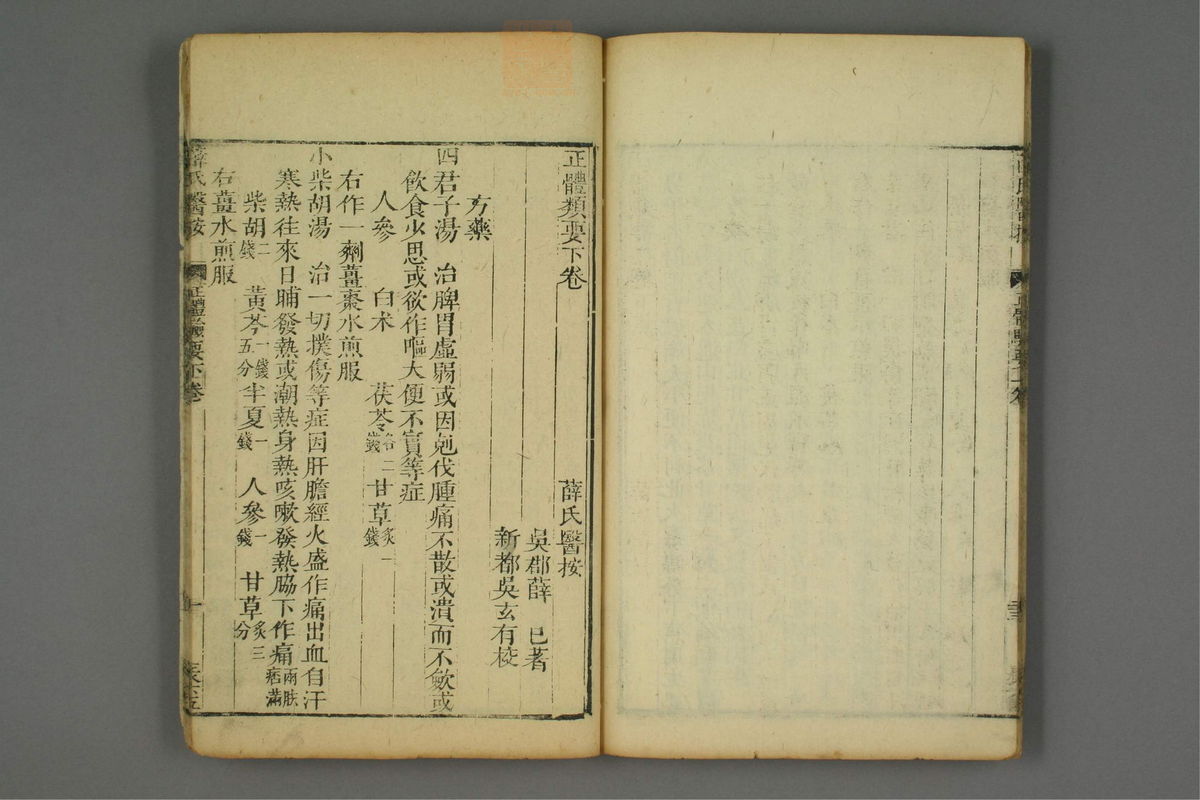 正體類要下卷　薛氏醫按
吳郡薛　已著
新都吳玄有校
方藥
四君子湯　治脾胃虛弱或因剋伐腫痛不散或潰而不斂或
飲食少思或欲作嘔大便不實等症
人參　白术　茯苓各二錢　甘草炙一錢
右作一劑薑棗水煎服
小柴胡湯　治一切撲傷等症因肝膽經火盛作痛出血自汗
寒熱往來日晡發熱或潮熱身熱咳嗽發熱脇下作痛兩胠痞滿
柴胡二錢　黃芩一錢五分　半夏一錢　人參一錢　甘草炙三分
右薑水煎服
薛氏醫按　正體類要下卷　一